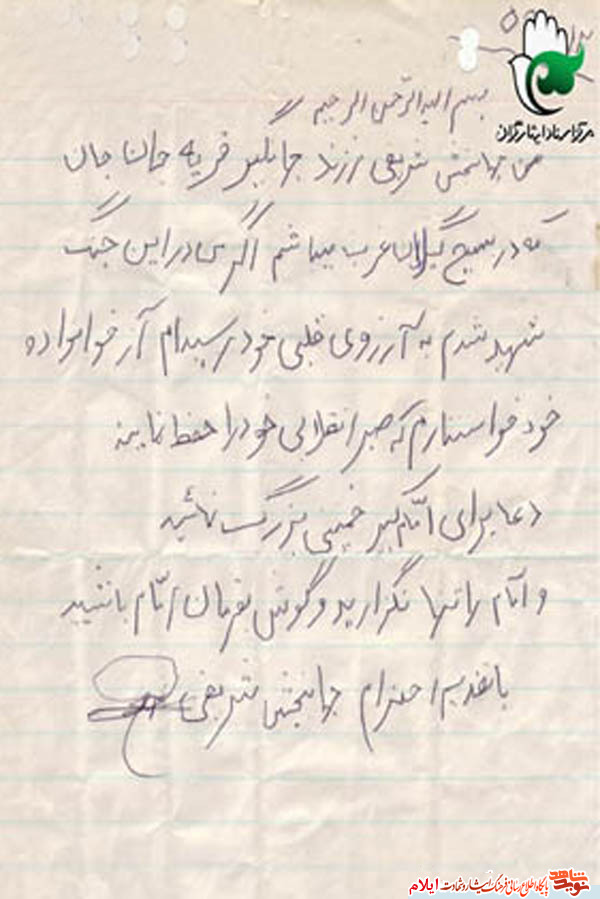 مرکز اسناد ایثارگران
بسم الله الرحمن الرحیم
من جهانبخش شریفی فرزند جهانگیر قریه جان جان
که در بسیج گیلان غرب میباشم اگر من در این جنگ
شهید شدم به آرزوی قلبی خود رسیدام از خوانواده
خود خواستارم که صبر انقلابی خود را حفظ نمایند
دعا برای امام کبیر خمینی بزرگ نمائید
و امام را تنها نگذارید و گوش بفرمان امام باشید
با تقدیم احترام جهانبخش شریفی
نوید شاهد پایگاه اطلاع رسانی فرهنگ ایثار و شهادت ایلام